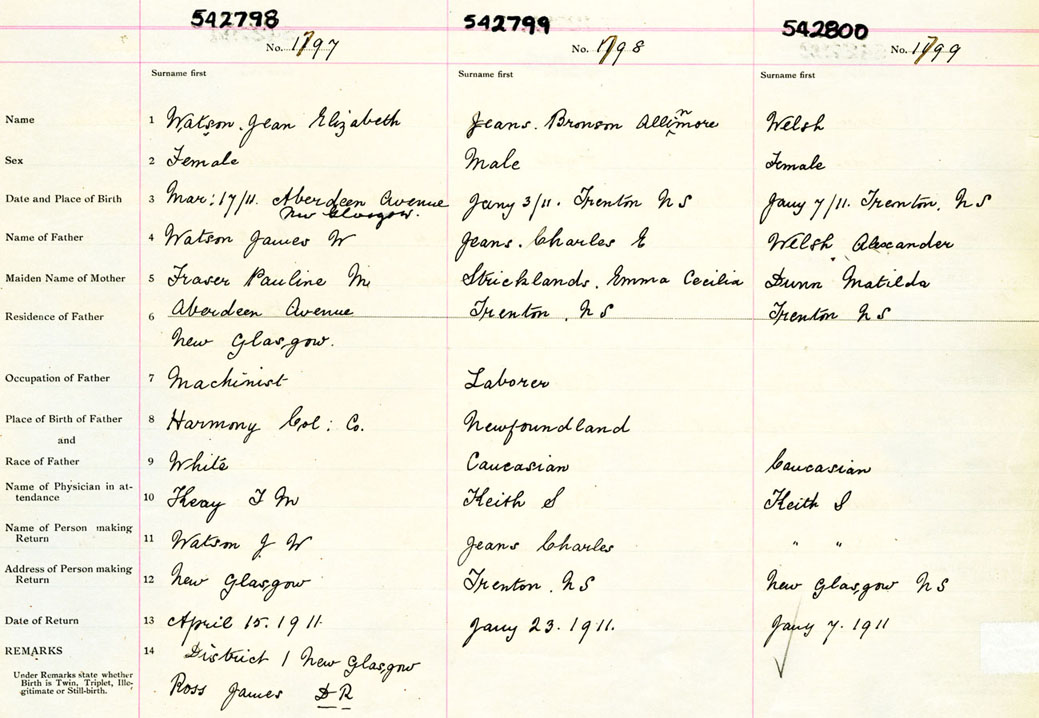 542798 542799 542800
No. 1797 No. 1798 No. 1799
Surname first Surname first Surname first
Name 1 Watson. Jean Elizabeth Jeans. Bronson Allinmore Welsh
Sex 2 Female Male Female
Date and Place of Birth 3 Mar: 17/11. Aberdeen Avenue Jany 3/11. Trenton N S Jany 7/11. Trenton. N S
New Glasgow.
Name of Father 4 Watson James W Jeans. Charles E Welsh Alexander
Maiden Name of Mother 5 Fraser Pauline M Stricklands. Emma Cecilia Dunn Matilda
Residence of Father 6 Aberdeen Avenue Trenton. N S Trenton N S
New Glasgow.
Occupation of Father 7 Machinist Laborer
Place of Birth of Father 8 Harmony Col: Co. Newfoundland
and
Race of Father 9 White Caucasian Caucasian
Name of Physician in at-
tendance 10 Keay T M Keith S Keith S
Name of Person making
Return 11 Watson J W Jeans Charles " "
Address of Person making
Return 12 New Glasgow Trenton. N S New Glasgow N S
Date of Return 13 April 15. 1911. Jany 23. 1911. Jany 7. 1911
REMARKS 14 District 1 New Glasgow
Under Remarks state whether
Birth is Twin, Triplet, Ille-
gitimate or Still-birth.
Ross James D R